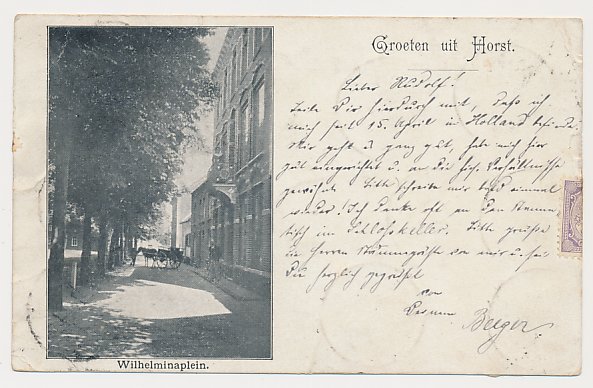 Groeten uit Horst.
Lieber Rudolf!
Teile Dir hierdurch mit, daß ich
mich seit 15. April in Holland befinde.
Mir geht es ganz gut, habe mich hier
gut eingerichtet u. an die hies. Verhältnisse
gewöhnt. Bitte schreibe mir bald einmal
wieder! Ich denke oft an den Stamm-
tisch im Schloßkeller. Bitte grüße
die Herren Stammgäste von mir u. sei
Du herzlich gegrüßt
von
Deinem
Beeger
Wilhelminaplein.